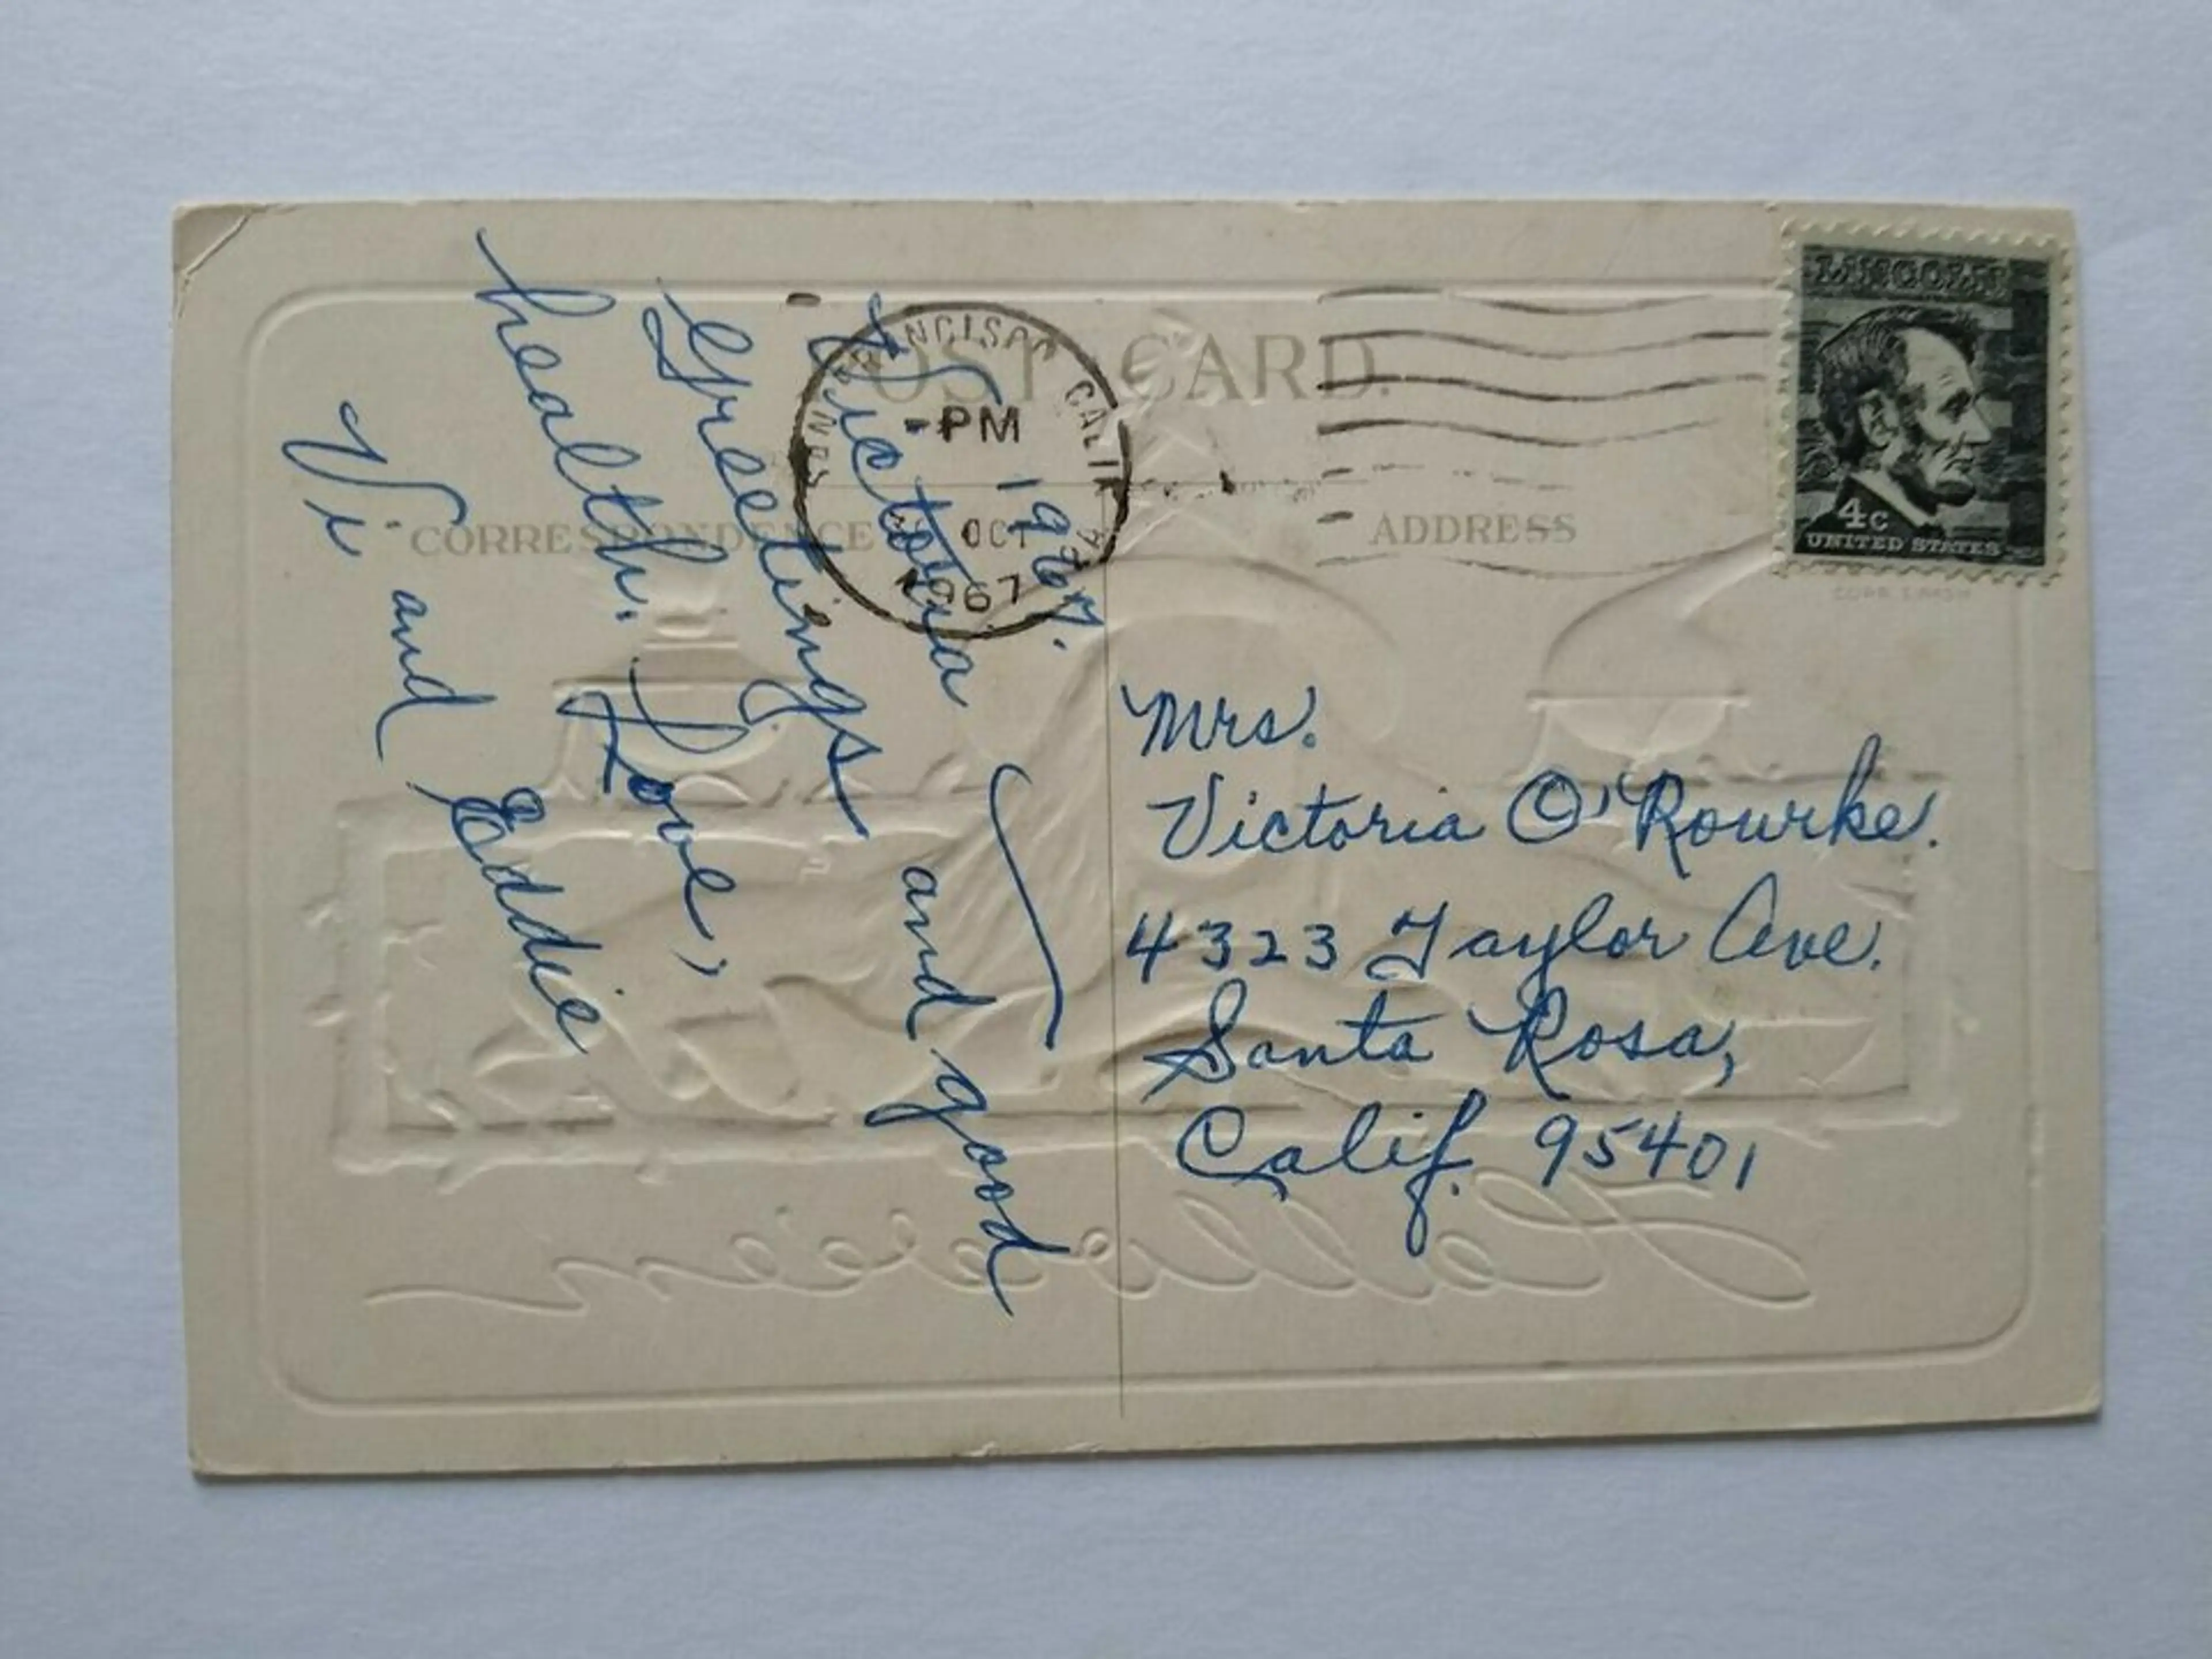 POST CARD.
CORRESPONDENCE
ADDRESS
LINCOLN
4c
UNITED STATES
FRANCISCO CALIF
PM
OCT
1967
1967.
Victoria
Greetings and good
health. Love,
Vi and Eddie
Mrs.
Victoria O'Rourke.
4323 Taylor Ave.
Santa Rosa,
Calif. 95401
Hallowe'en